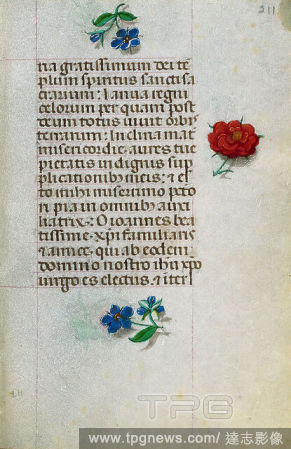 211
na gratissimum dei te
plum spiritus sancti sa
crarium: Ianua regni
celorum per quam post
deum totus vivit orbis
terrarum: Inclina mat
misericordie, aures tue
pietatis indignis sup
plicationibus meis: et es
to mihi miserrimo pctō
ri pia in omnibus auxi
liatrix: O ioannes bea
tissime xp̄i familiaris
et amice, qui ab eodem
domino nostro ihū xp̄o
uirgo es electus et iter
TPG
www.tpgnews.com/ 達志影像